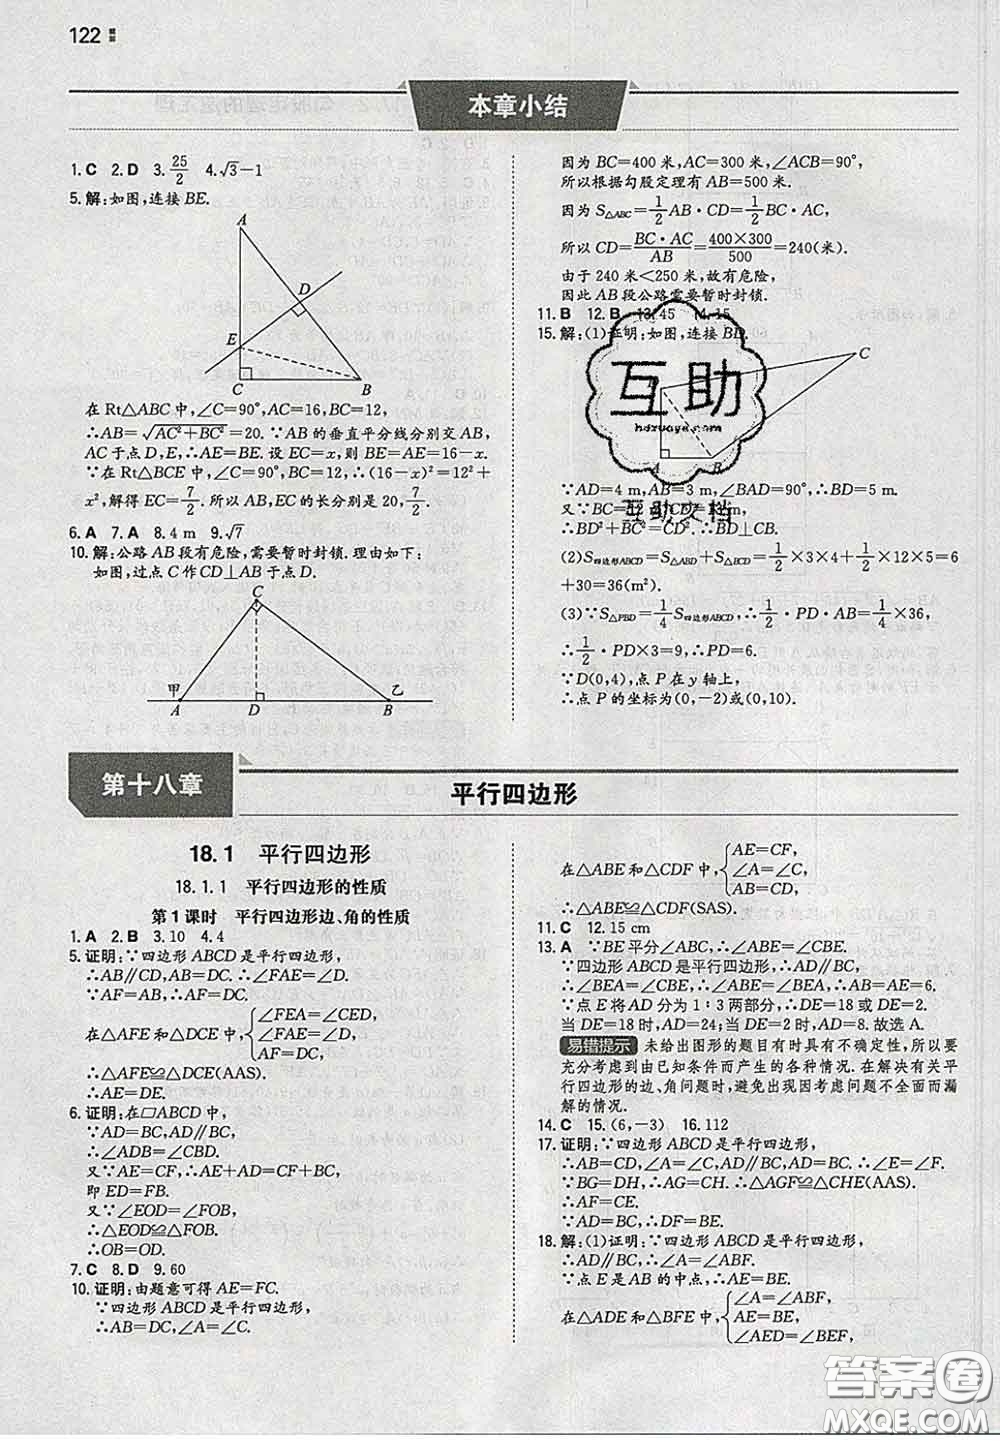 122
本章小结
1.C 2.D 3.25/2 4.√3−1
5.解:如图,连接 BE.
A
D
E
C
B
在 Rt△ABC 中,∠C=90°,AC=16,BC=12,
∴AB=√(AC²+BC²)=20. ∵AB 的垂直平分线分别交 AB,
AC 于点 D,E,∴AE=BE. 设 EC=x,则 BE=AE=16−x.
∵在 Rt△BCE 中,∠C=90°,BC=12,∴(16−x)²=12²+
x²,解得 EC=7/2. 所以 AB,EC 的长分别是 20,7/2.
6.A 7.A 8.4 m 9.√7
10.解:公路 AB 段有危险,需要暂时封锁.理由如下:
如图,过点 C 作 CD⊥AB 于点 D.
C
甲
乙
A
D
B
因为 BC=400 米,AC=300 米,∠ACB=90°,
所以根据勾股定理有 AB=500 米.
因为 S△ABC=1/2 AB·CD=1/2 BC·AC,
所以 CD=BC·AC/AB=400×300/500=240(米).
由于 240 米<250 米,故有危险,
因此 AB 段公路需要暂时封锁.
11.B 12.B 13.45 14.15
15.解:(1)证明:如图,连接 BD.
C
A
B
互助
hdzuoye.com
互助文档
∵AD=4 m,AB=3 m,∠BAD=90°,∴BD=5 m.
又∵BC=12 m,CD=13 m,
∴BD²+BC²=CD². ∴BD⊥CB.
(2)S四边形ABCD=S△ABD+S△BCD=1/2×3×4+1/2×12×5=6
+30=36(m²).
(3)∵S△PBD=1/4 S四边形ABCD,∴1/2·PD·AB=1/4×36,
∴1/2·PD×3=9,∴PD=6.
∵D(0,4),点 P 在 y 轴上,
∴点 P 的坐标为(0,−2)或(0,10).
第十八章
平行四边形
18.1 平行四边形
18.1.1 平行四边形的性质
第1课时 平行四边形边、角的性质
1.A 2.B 3.10 4.4
5.证明:∵四边形 ABCD 是平行四边形,
∴AB∥CD,AB=DC. ∴∠FAE=∠D.
∵AF=AB,∴AF=DC.
在△AFE 和△DCE 中,{∠FEA=∠CED,
∠FAE=∠D,
AF=DC,
∴△AFE≌△DCE(AAS).
∴AE=DE.
6.证明:在▱ABCD 中,
∵AD=BC,AD∥BC,
∴∠ADB=∠CBD.
又∵AE=CF,∴AE+AD=CF+BC.
即 ED=FB.
又∵∠EOD=∠FOB,
∴△EOD≌△FOB.
∴OB=OD.
7.C 8.D 9.60
10.证明:由题意可得 AE=FC.
∵四边形 ABCD 是平行四边形,
∴AB=DC,∠A=∠C.
在△ABE 和△CDF 中,{AE=CF,
∠A=∠C,
AB=CD,
∴△ABE≌△CDF(SAS).
11.C 12.15 cm
13.A ∵BE 平分∠ABC,∴∠ABE=∠CBE.
∵四边形 ABCD 是平行四边形,∴AD∥BC.
∴∠BEA=∠CBE,∴∠ABE=∠BEA,∴AB=AE=6.
∵点 E 将 AD 分为 1∶3 两部分,∴DE=18或 DE=2.
当 DE=18 时,AD=24;当 DE=2 时,AD=8.故选 A.
易错提示 未给出图形的题目有时具有不确定性,所以要
充分考虑由已知条件而产生的各种情况.在解决有关平
行四边形的边、角问题时,避免出现因考虑问题不全面而漏
解的情况.
14.C 15.(6,−3) 16.112
17.证明:∵四边形 ABCD 是平行四边形,
∴AB=CD,∠A=∠C,AD∥BC,∴∠E=∠F.
∵BG=DH,∴AG=CH. ∴△AGF≌△CHE(AAS).
∴AF=CE.
∵AD=BC,∴DF=BE.
18.解:(1)证明:∵四边形 ABCD 是平行四边形,
∴AD∥BC,∴∠A=∠ABF.
∵点 E 是 AB 的中点,∴AE=BE.
在△ADE 和△BFE 中,{∠A=∠ABF,
AE=BE,
∠AED=∠BEF,
答案圈
MXQE.COM